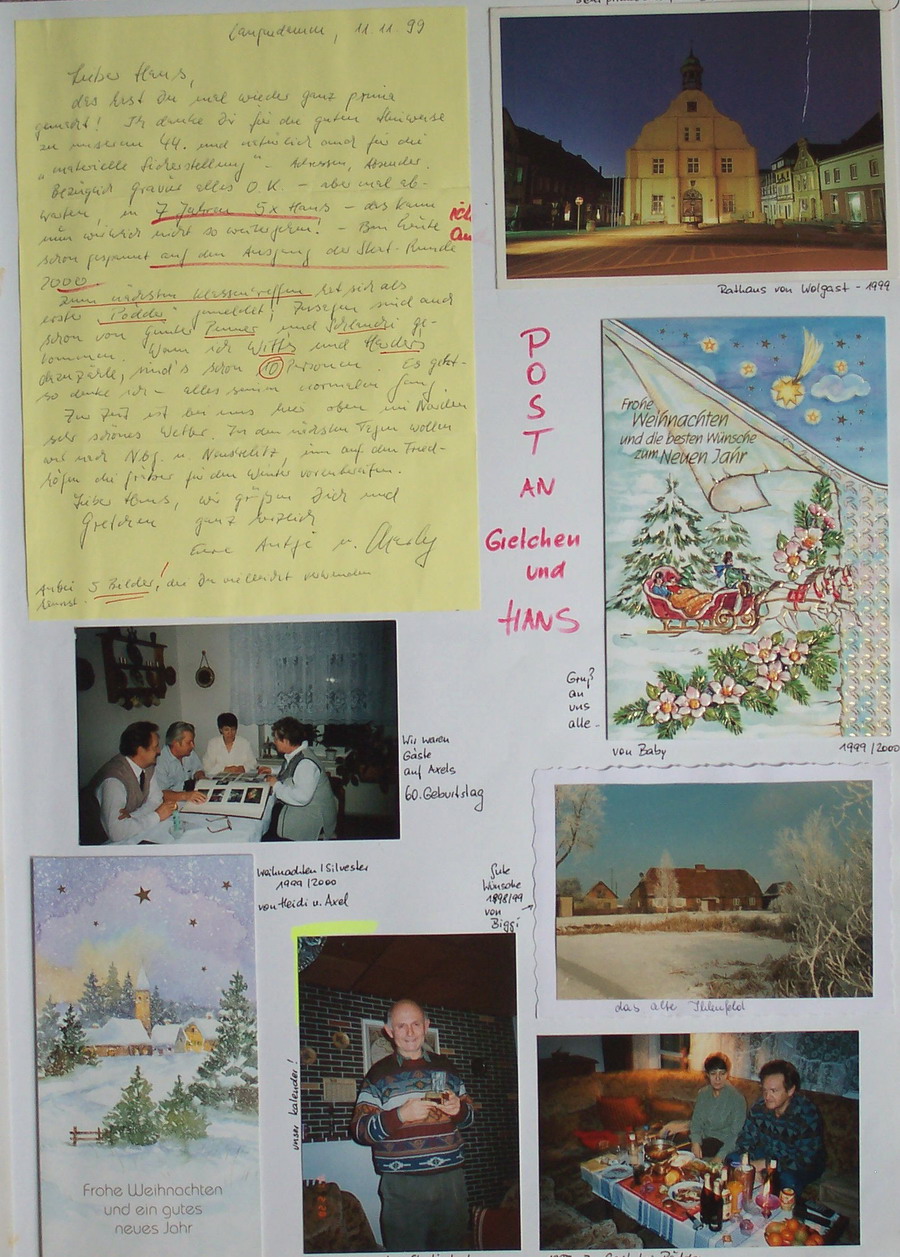 11.11.99
Lieber Hans,
das hast Du mal wieder ganz prima
gemacht! Ich danke Dir für die guten Hinweise
zu unserem 44. und natürlich auch für die
"materielle Sicherstellung" - Adressen, Absender.
Bezüglich Gravur alles O.K. - aber mal ab-
warten, in 7 Jahren 5x Hans - das kann
nun wirklich nicht so weitergehen! - Bin heute
schon gespannt auf den Ausgang der Skat-Runde
2000
Zum nächsten Klassentreffen hat sich als
erster "Pödder" gemeldet! Zusagen sind auch
schon von und ge-
kommen. Wenn ich und
dazuzähle, sind's schon 10 Personen. Es geht -
so denke ich - alles seinen normalen Gang.
Zur Zeit ist bei uns hier oben im Norden
sehr schönes Wetter. In den nächsten Tagen wollen
wir nach Nbg. u. Neustrelitz, um auf den Fried-
höfen die Gräber für den Winter vorzubereiten.
Lieber Hans, wir grüßen Dich und
Gretchen ganz herzlich
Eure Antje u.
Anbei 5 Bilder! die Du vielleicht verwenden
kannst.
ich
Rathaus von Wolgast - 1999
POST
AN
Gretchen
und
HANS
Frohe
Weihnachten
und die besten Wünsche
zum Neuen Jahr
Gruß
an
uns
alle -
von Baby
1999/2000
Wir waren
Gäste
auf Axels
60. Geburtstag
Weihnachten/Silvester
1999/2000
von Heidi u. Axel
Gute
Wünsche
1998/99
von
Biggi
das alte Ihlenfeld
unser Kalender!
Frohe Weihnachten
und ein gutes
neues Jahr